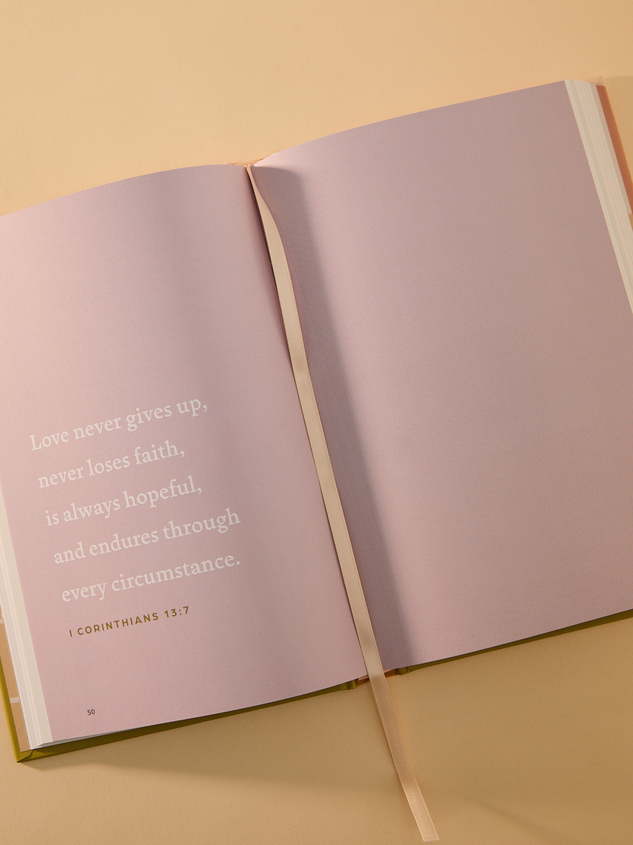 Love never gives up,
never loses faith,
is always hopeful,
and endures through
every circumstance.
I CORINTHIANS 13:7
50